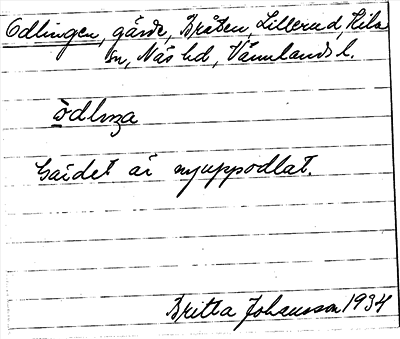 Odlingen, gärde, Bråten, Lillerud, Kila
sn, Näs hd, Värmlands l.
ò̱dlıŋa
Gärdet är nyuppodlat.
Britta Johansson 1934